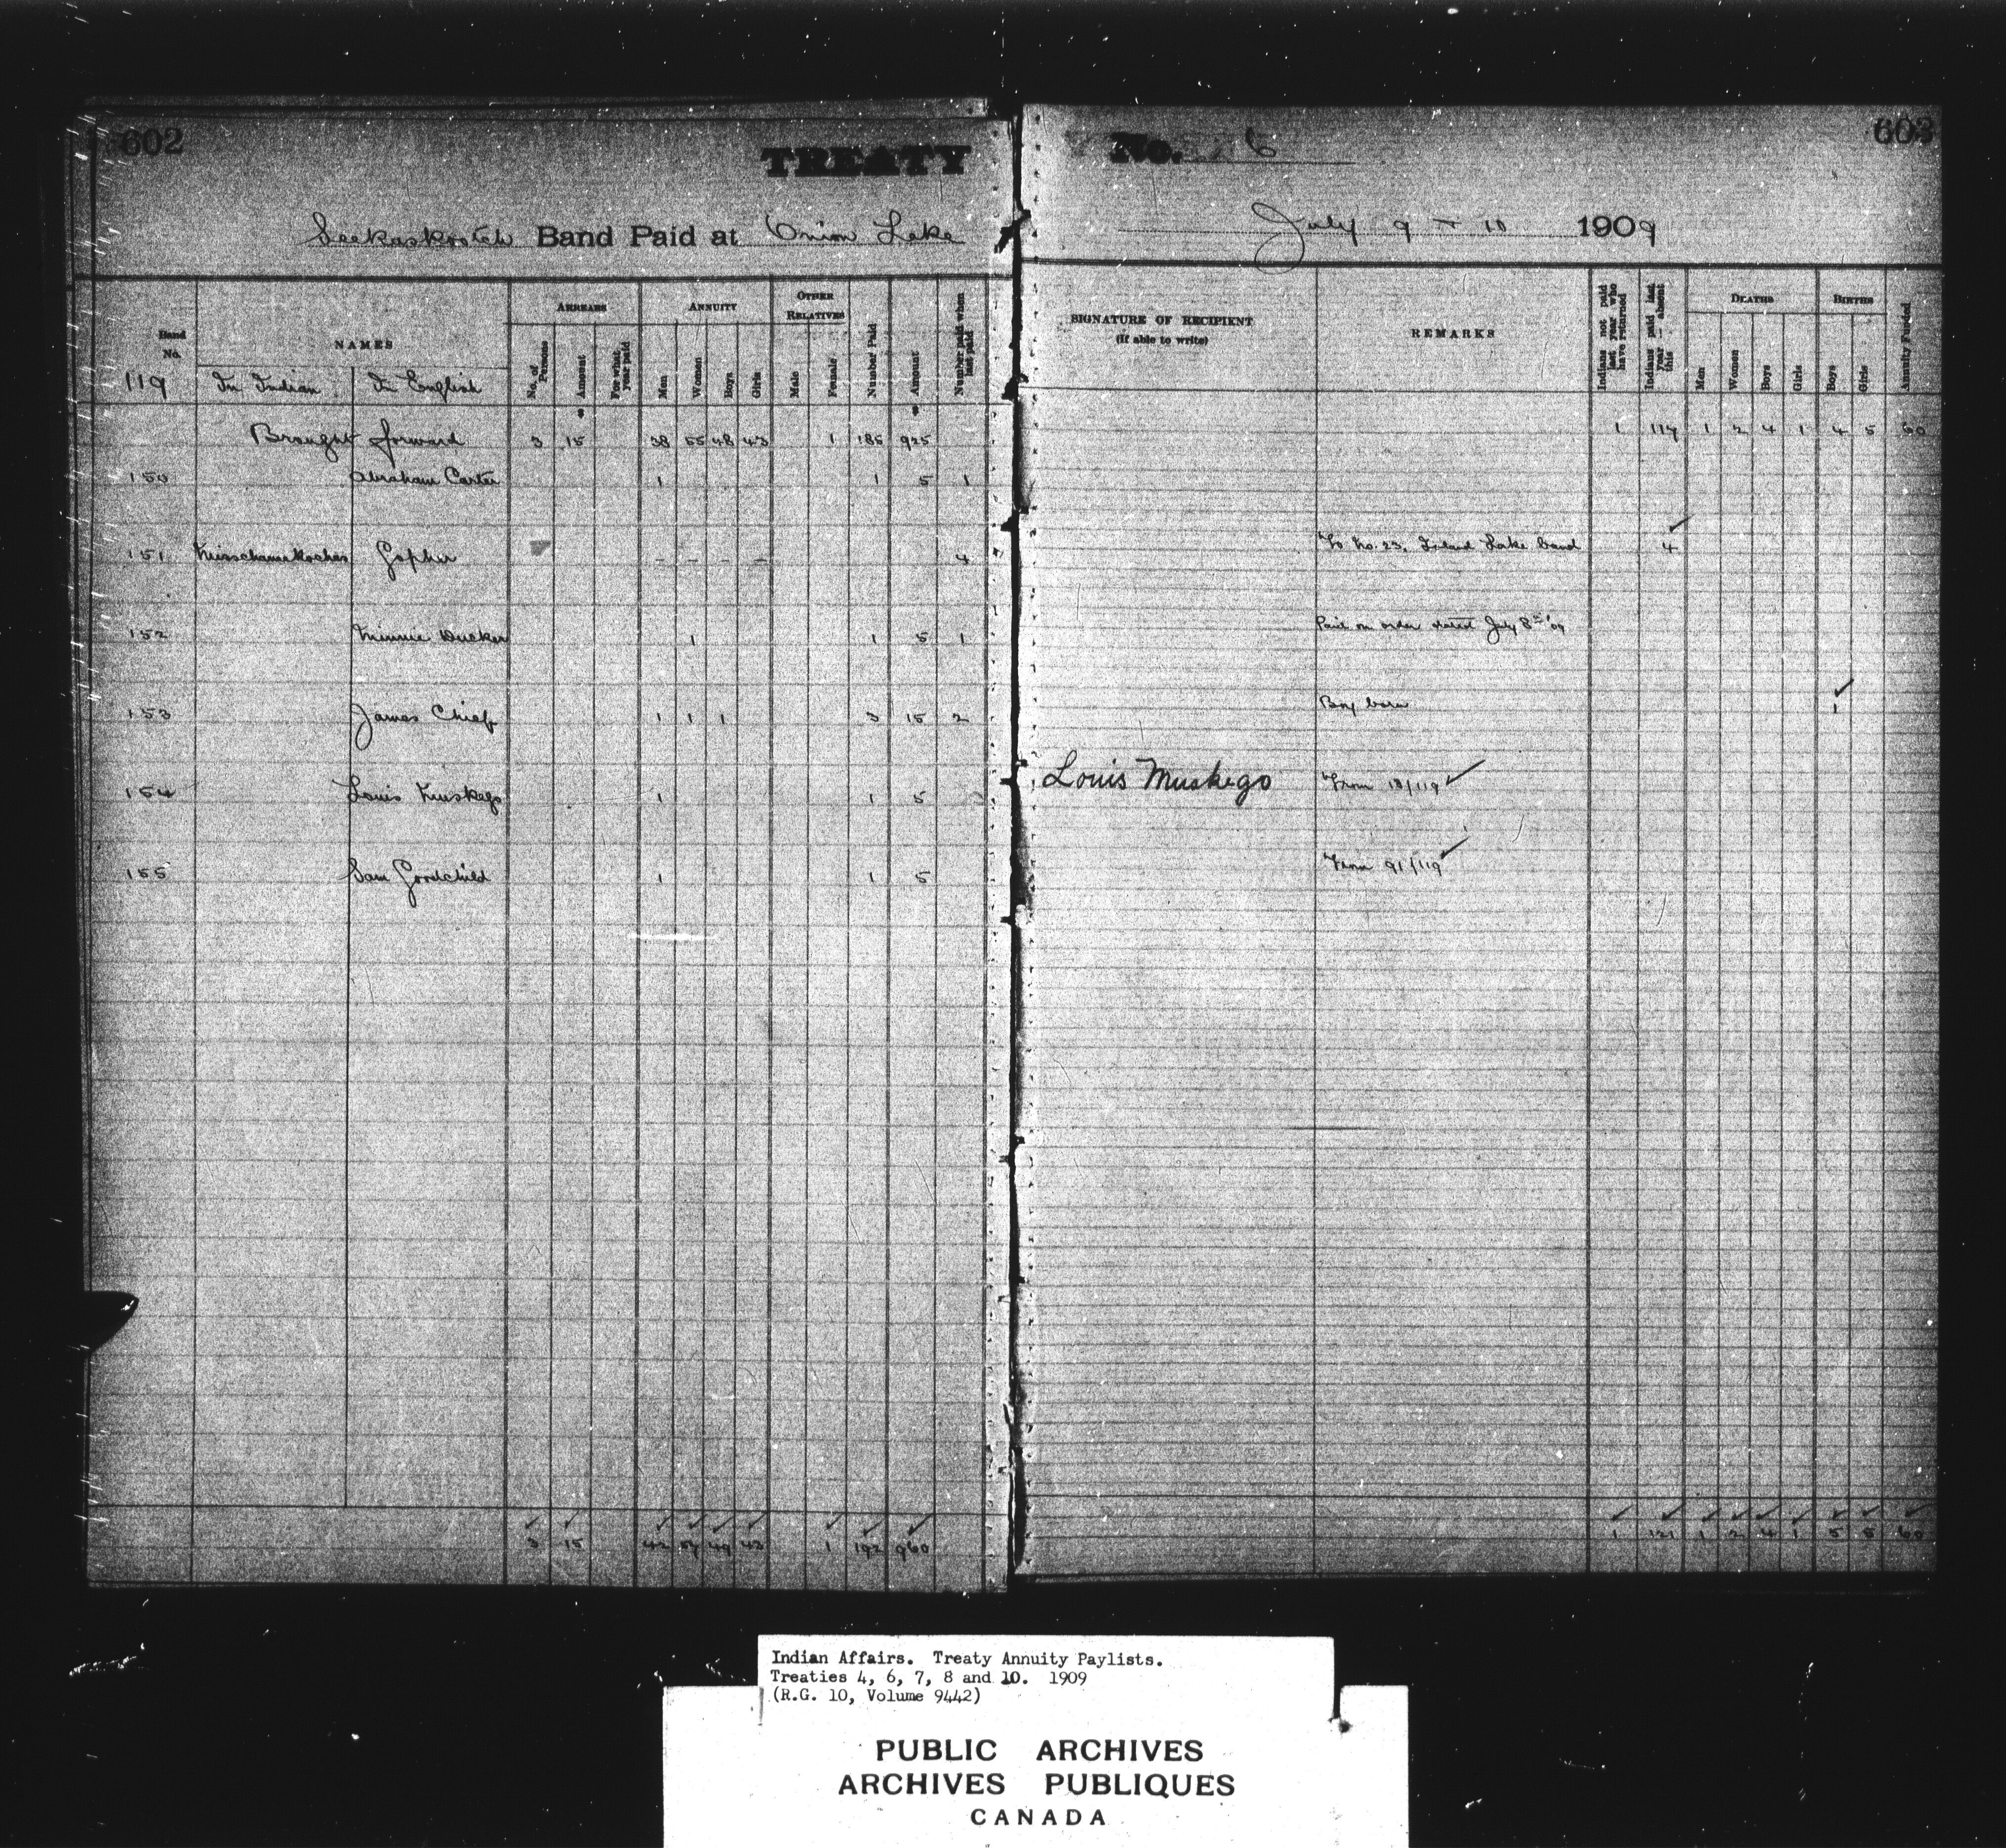 602
TREATY
No. 6
603
Seekaskootch Band Paid at Onion Lake
July 9 - 10 1909
Band No.
NAMES
ARREARS
ANNUITY
OTHER RELATIVES
No. of Persons
Amount
For what year paid
Men
Women
Boys
Girls
Male
Female
Number Paid
Amount
Number paid when last paid
SIGNATURE OF RECIPIENT
(If able to write)
REMARKS
Indians not paid last year who have returned
Indians paid last year — absent this
DEATHS
Men
Women
Boys
Girls
BIRTHS
Boys
Girls
Annuity Funded
119 In Indian In English
Brought forward 3 15 38 55 48 43 1 185 925 1 117 1 2 4 1 4 5 60
150 Abraham Carter 1 1 5 1
151 Gopher - - - - 4 To No. 23, Island Lake band 4
152 Minnie 1 1 5 1 Paid on order dated July 8th '09
153 James Chief 1 1 1 3 15 2 Boy born 1
154 Louis Muskego 1 1 5 Louis Muskego From 18/119
155 Sam Goodchild 1 1 5 From 91/119
3 15 42 57 49 43 1 192 960 1 121 1 2 4 1 5 5 60
Indian Affairs. Treaty Annuity Paylists.
Treaties 4, 6, 7, 8 and 10. 1909
(R.G. 10, Volume 9442)
PUBLIC ARCHIVES
ARCHIVES PUBLIQUES
CANADA